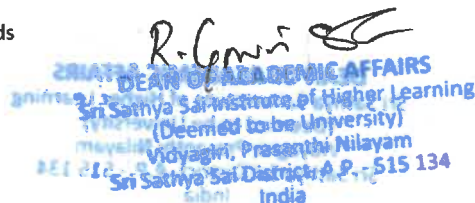 ds
DEAN OF ACADEMIC AFFAIRS
Sri Sathya Sai Institute of Higher Learning
(Deemed to be University)
Vidyagiri, Prasanthi Nilayam
Sri Sathya Sai District, A.P. - 515 134
India